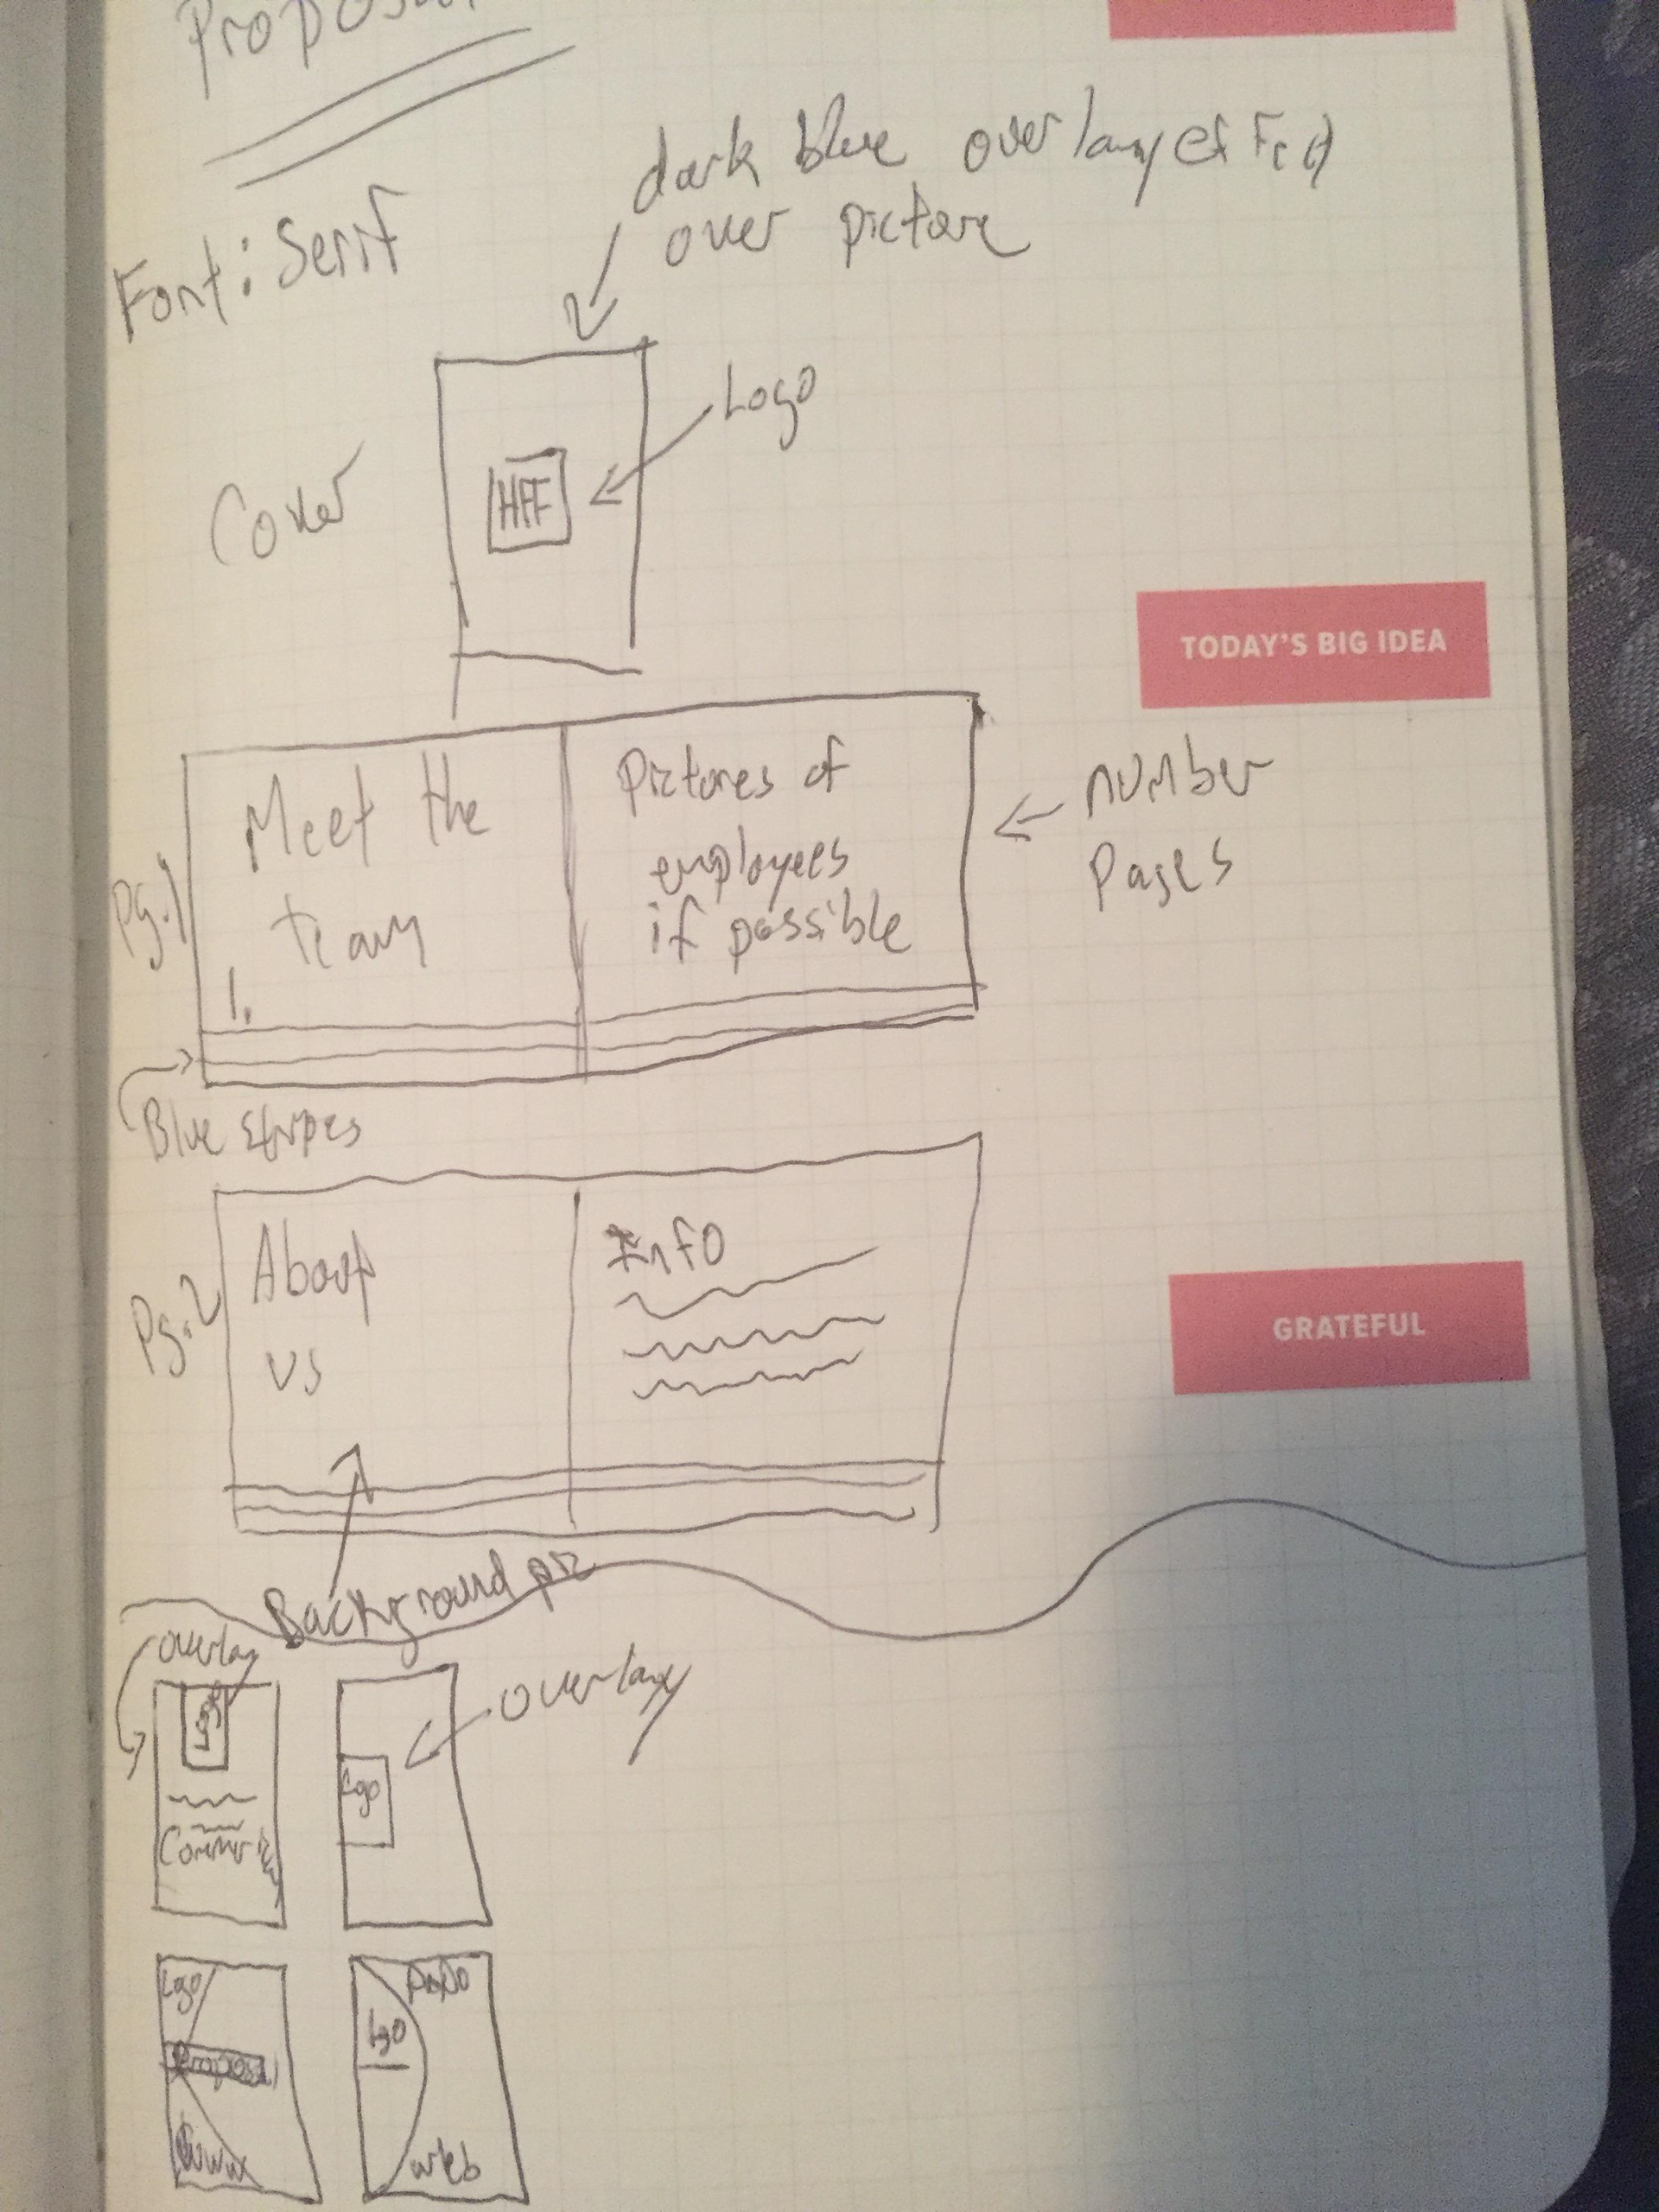 Font: Serif
dark blue overlay effect
over picture
Logo
Cover
HFF
TODAY'S BIG IDEA
Pg. 1
Meet the
team
1.
Pictures of
employees
if possible
number
Pages
Blue stripes
Pg. 2
About
us
Info
GRATEFUL
Background pic
overlay
Logo
overlay
Logo
Logo
Proposal
www
Logo
web